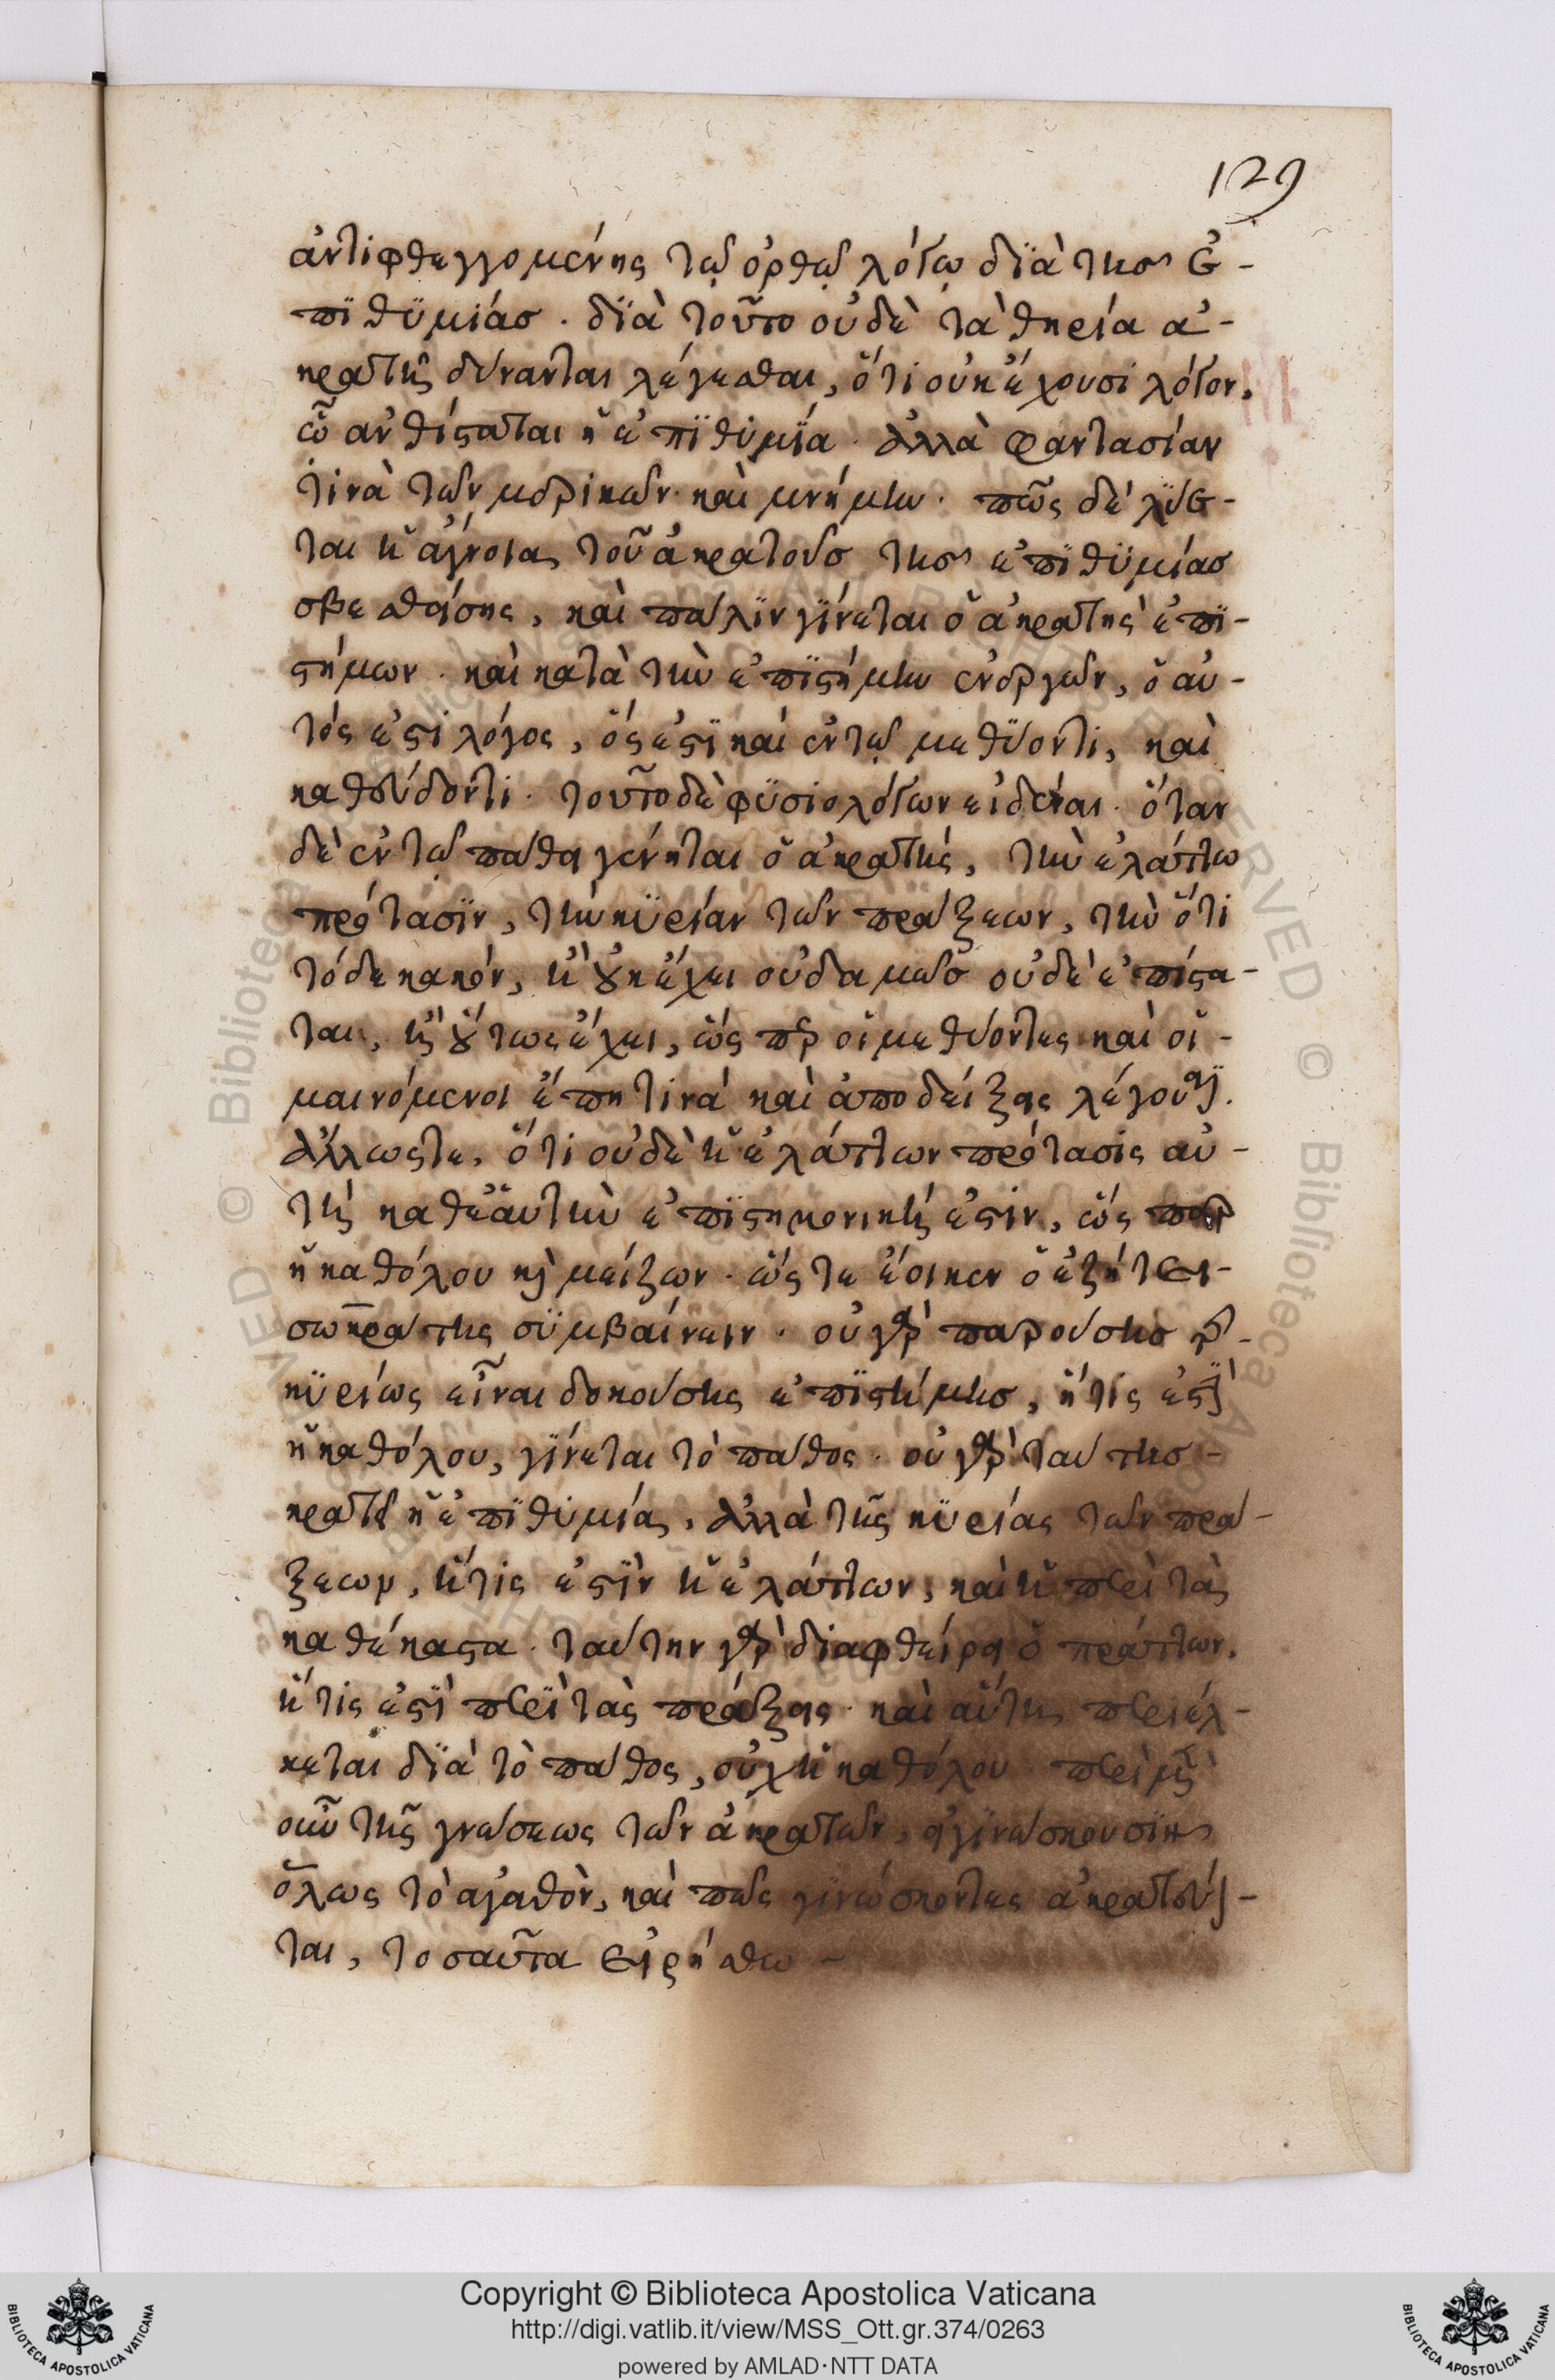 129
ἀντιφθεγγομένης τῷ ὀρθῷ λόγῳ διὰ τῆς ἐ-
πϊθϋμίας. δϊὰ τοῦτο οὐδὲ τὰ θηρία ἀ-
κρατῆ δύνανται λέγεσθαι, ὅτι οὐκ ἔχουσι λόγον,
ᾧ ἀνθίσταται ἡ ἐπϊθυμία. ἀλλὰ φαντασίαν
τινὰ τῶν μερικῶν καὶ μνήμην. πῶς δὲ λύε-
ται ἡ ἄγνοια τοῦ ἀκρατοῦς τῆς ἐπϊθϋμίας
σβεσθείσης, καὶ πάλϊν γίνεται ὁ ἀκρατὴς ἐπϊ-
στήμων. καὶ κατὰ τὴν ἐπϊστήμην ἐνεργῶν, ὁ αὐ-
τός ἐστι λόγος, ὅς ἐστϊ καὶ ἐν τῷ μεθύοντι, καὶ
καθεύδοντι. τοῦτο δὲ φϋσιολόγων εἰδέναι. ὅταν
δὲ ἐν τῷ πάθει γένηται ὁ ἀκρατής, τὴν ἐλάττω
πρότασϊν, τὴν κϋρίαν τῶν πράξεων, τὴν ὅτι
τόδε κακόν, ἢ οὐκ ἔχει οὐδαμῶς οὐδὲ ἐπίστα-
ται, ἢ οὕτως ἔχει, ὥς περ οἱ μεθύοντες καὶ οἱ
μαινόμενοι ἔπη τινὰ καὶ ἀποδείξεις λέγουσϊ.
ἄλλωστε, ὅτι οὐδὲ ἡ ἐλάττων πρότασις αὐ-
τὴ καθ' ἑαυτὴν ἐπϊστημονική ἐστιν, ὥς περ
ἡ καθόλου καὶ μείζων. ὥς τε ἔοικεν ὃ ἐζήτει
σωκράτης σϋμβαίνειν. οὐ γὰρ παρούσης
κϋρίως εἶναι δοκούσης ἐπϊστήμης, ἥτις ἐστϊ
ἡ καθόλου, γίνεται τὸ πάθος. οὐ γὰρ ταύτης
κρατεῖ ἡ ἐπϊθυμία, ἀλλὰ τῆς κϋρίας τῶν πρά-
ξεων, ἥτις ἐστὶν ἡ ἐλάττων, καὶ ἡ περὶ τὰ
καθέκαστα. ταύτην γὰρ διαφθείρει ὁ πράττων.
ἥτις ἐστὶ περὶ τὰς πράξεις. καὶ αὕτη περιέλ-
κεται δϊὰ τὸ πάθος, οὐχ ἡ καθόλου. περὶ μὲν
οὖν τῆς γνώσεως τῶν ἀκρατῶν, εἰ γινώσκουσϊν
ὅλως τὸ ἀγαθὸν, καὶ πῶς γινώσκοντες ἀκρατεύ-
ται, τοσαῦτα εἰρήσθω
Copyright © Biblioteca Apostolica Vaticana
http://digi.vatlib.it/view/MSS_Ott.gr.374/0263
powered by AMLAD·NTT DATA
BIBLIOTECA APOSTOLICA VATICANA
BIBLIOTECA APOSTOLICA VATICANA